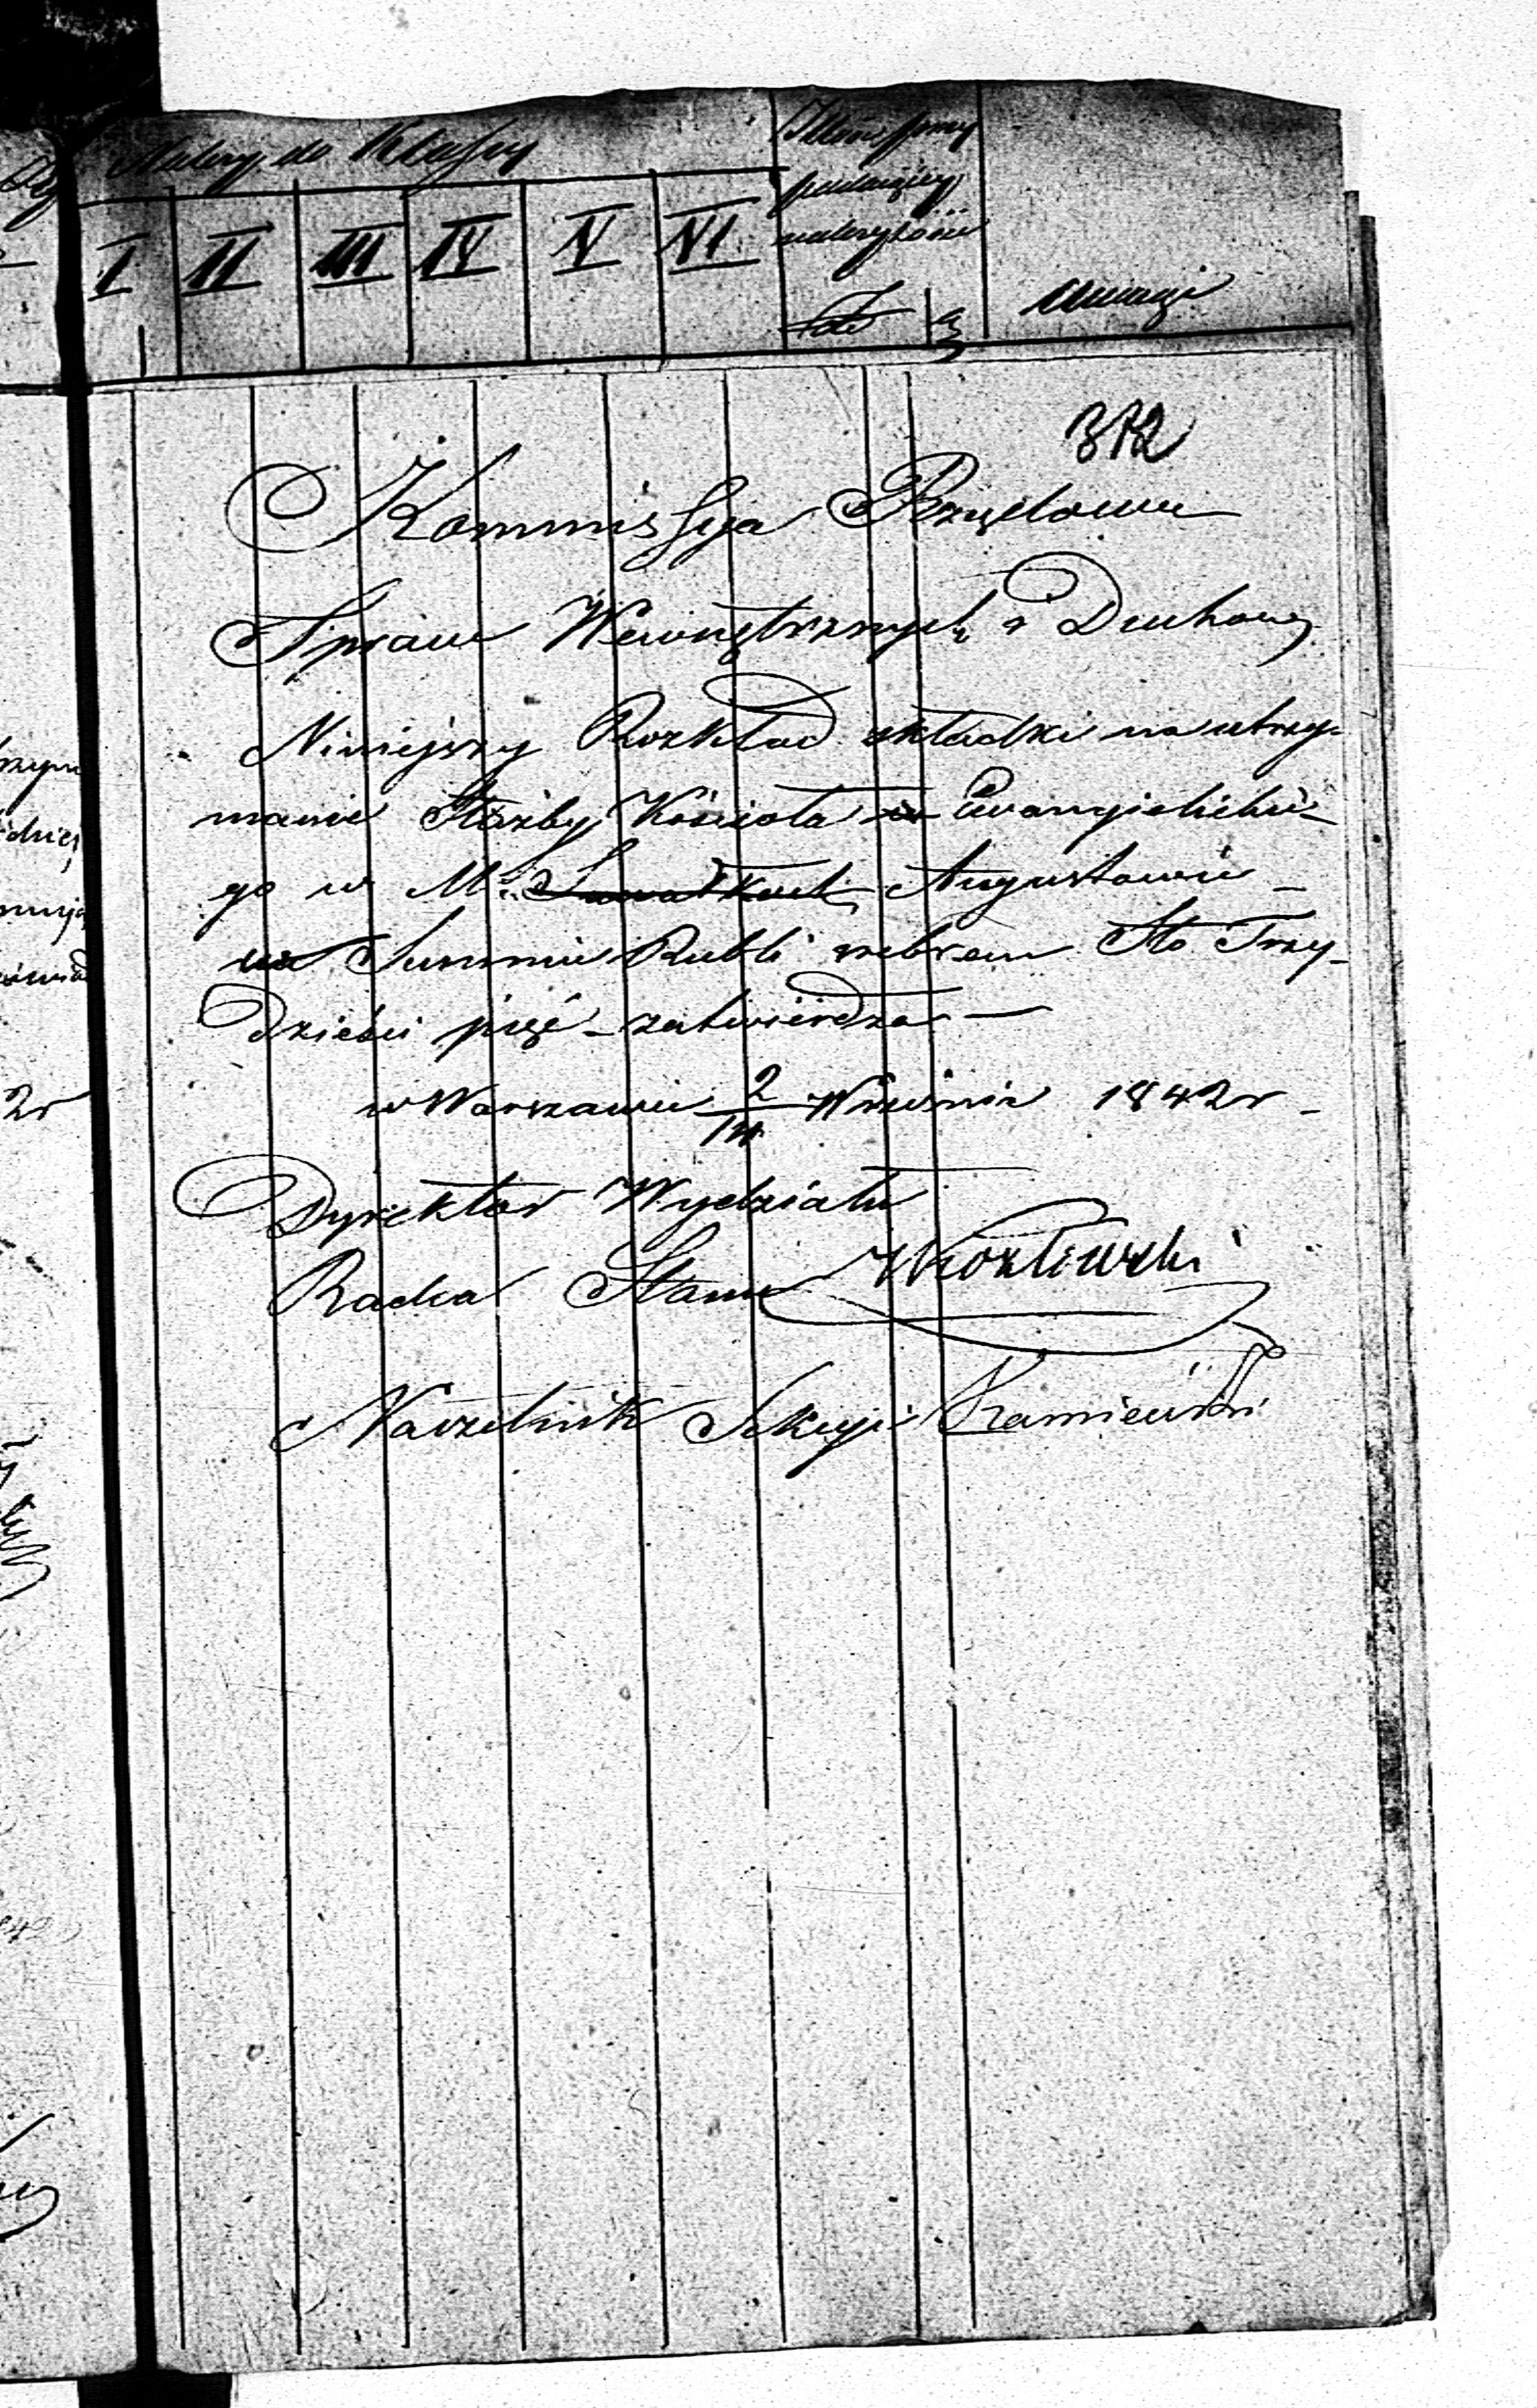 Należy do Klassy
I II III IV V VI
Uwagi
372
Kommissya Rządowa
Spraw Wewnętrznych i Duchow.
Niniejszy Rozkład składki na utrzy-
manie Służby Kościoła Ewangielickie-
go w M. Suwałkach Augustowie
w Summie Rubli srebrem Sto Trzy-
dzieści pięć - zatwierdza -
w Warszawie 2/14 Września 1842 r -
Dyrektor Wydziału
Radca Stanu Kozłowski
Naczelnik Sekcyi Kamieński